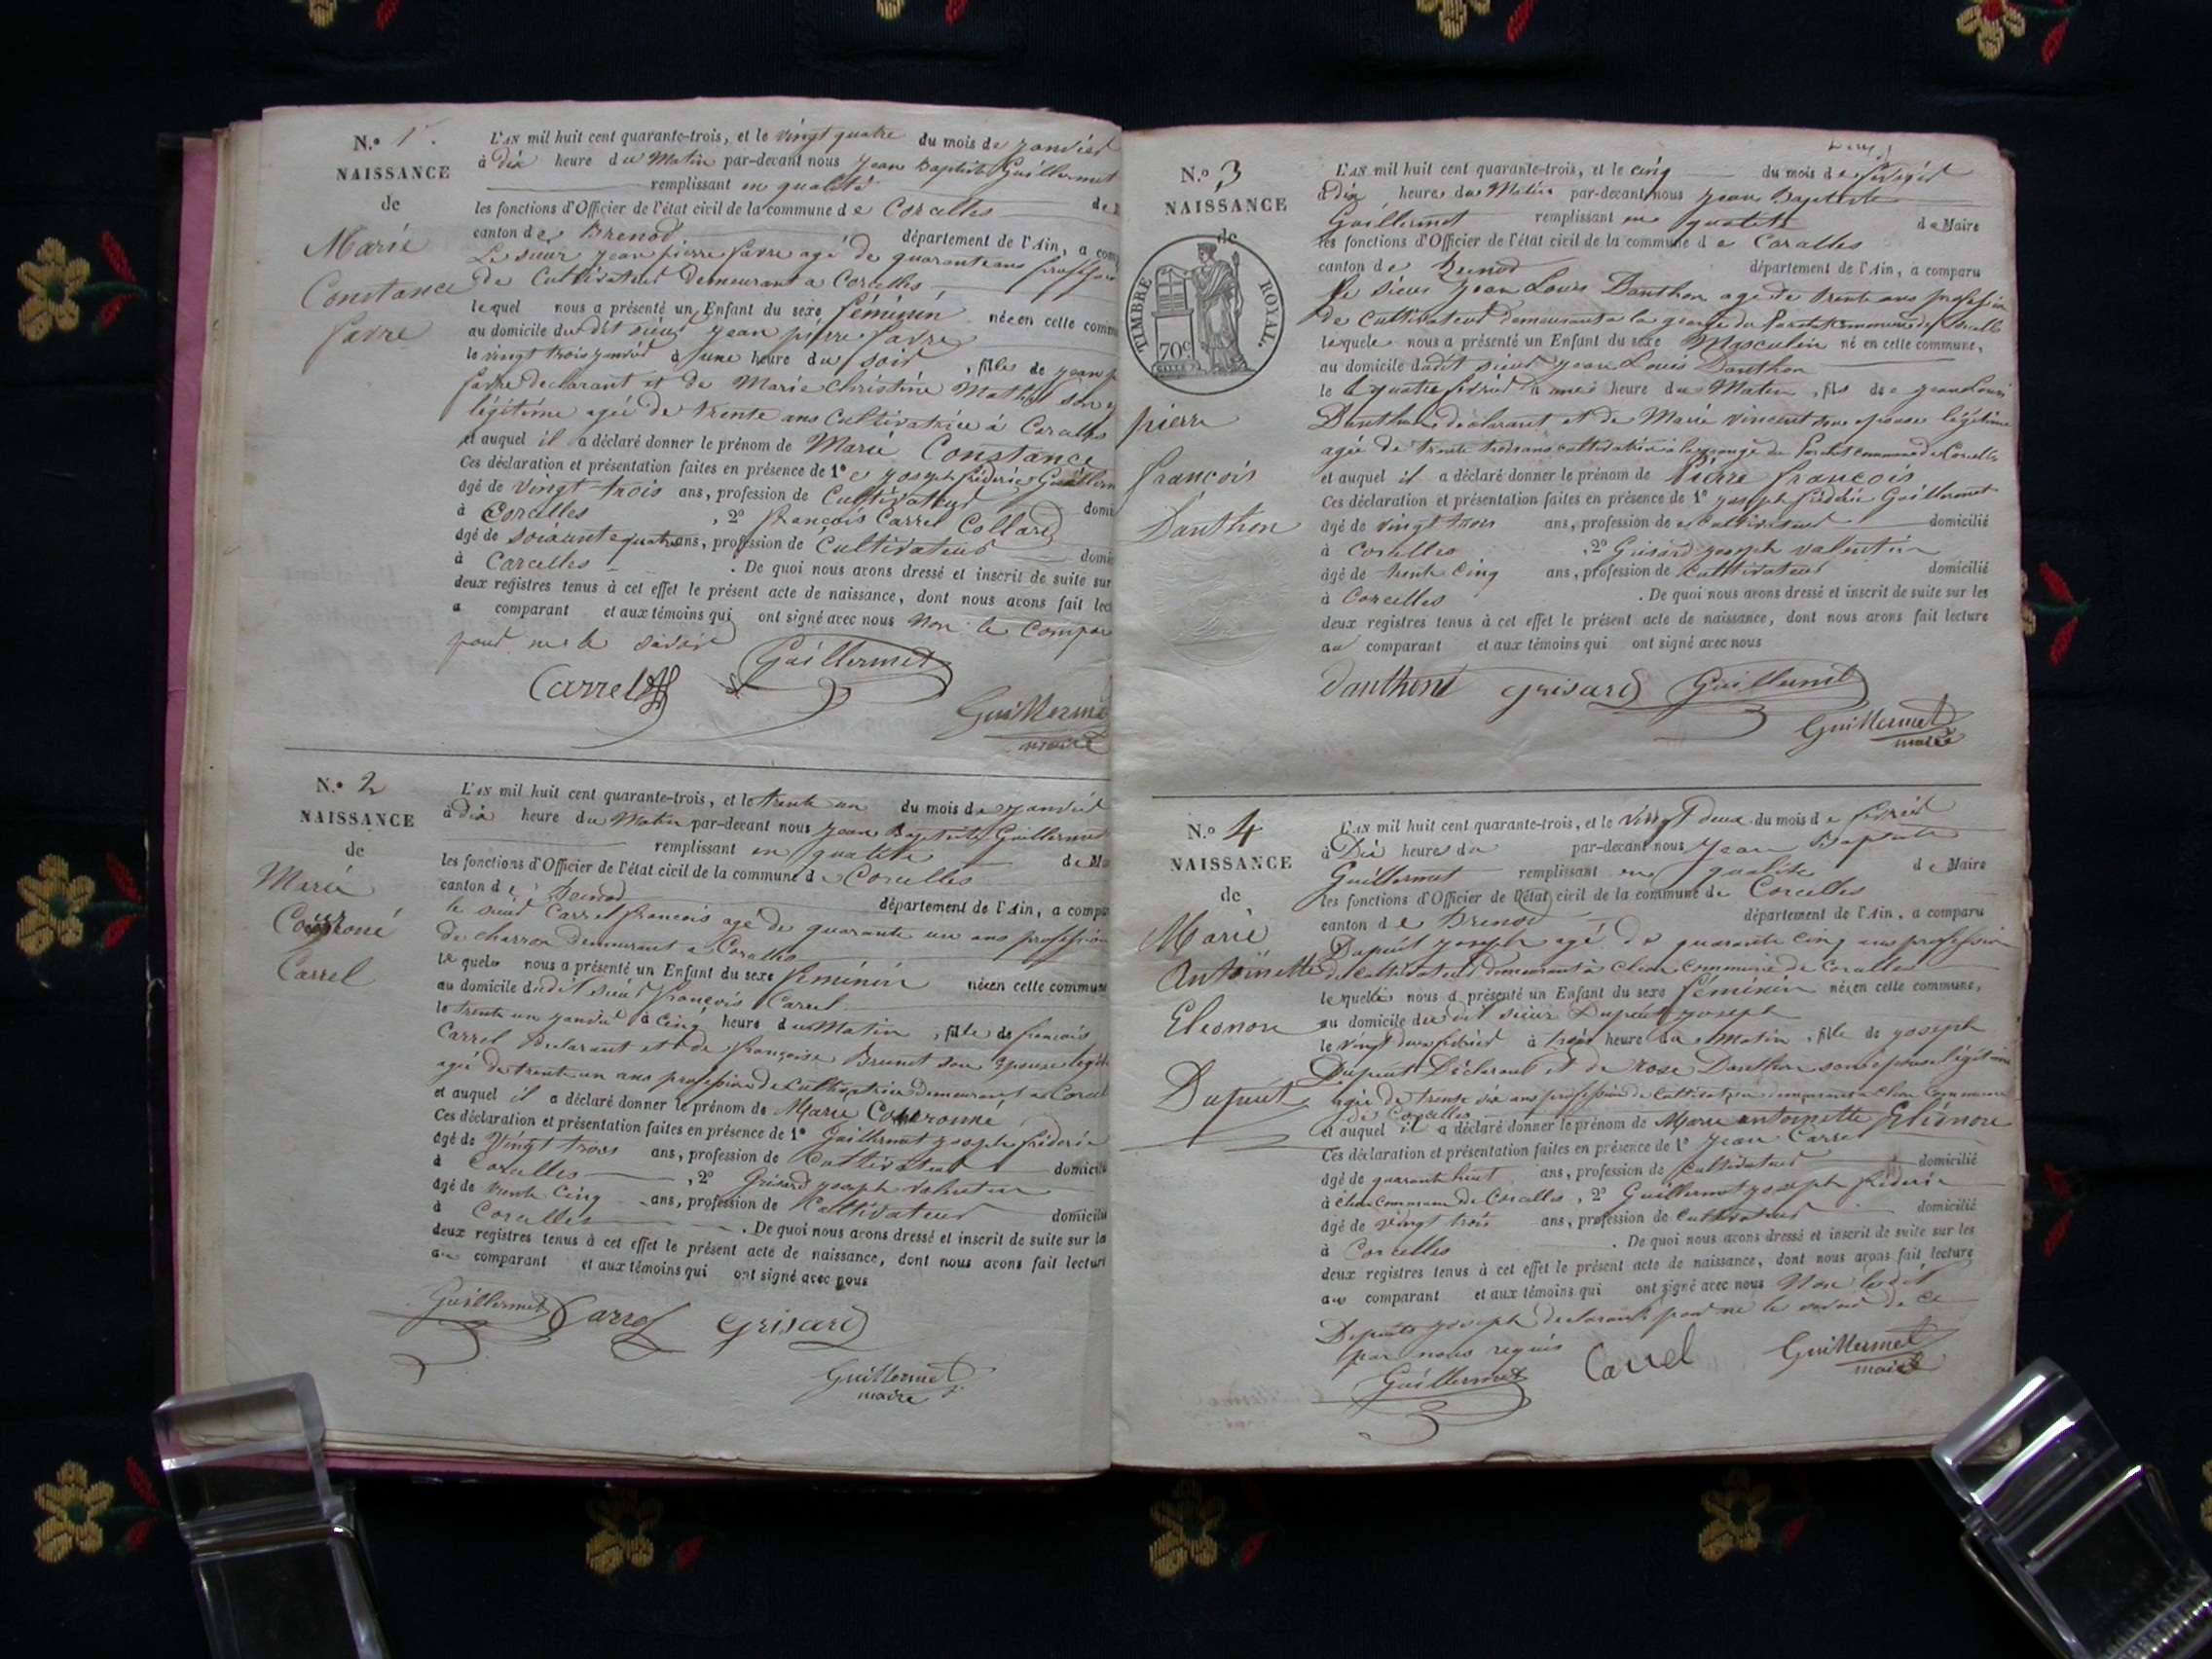 N.o 1
NAISSANCE
de
Marie
Constance
favre
L'AN mil huit cent quarante-trois, et le vingt quatre du mois de janvier
à dix heure du Matin par-devant nous jean Baptiste Guillermet
remplissant en qualité
les fonctions d'Officier de l'état civil de la commune de Corcelles
canton de Brenod département de l'Ain, a com
Le sieur jean pierre favre agé de quarante ans profession
de Cultivateur demeurant a Corcelles
lequel nous a présenté un Enfant du sexe féminin née en cette comm
au domicile dudit sieur jean pierre favre
le vingt trois janvier à une heure du soir, fille de jean p
favre declarant et de Marie Christine Mathel son
légitime agée de trente ans Cultivatrice à Corcelles
et auquel il a déclaré donner le prénom de Marie Constance
Ces déclaration et présentation faites en présence de 1° joseph fréderic Guillerm
âgé de vingt trois ans, profession de Cultivateur domi
à Corcelles, 2° françois Carrel Collard
âgé de soixante quatre ans, profession de Cultivateur domi
à Corcelles. De quoi nous avons dressé et inscrit de suite sur
deux registres tenus à cet effet le présent acte de naissance, dont nous avons fait lect
a comparant et aux témoins qui ont signé avec nous Non le compar
pour ne le savoir
Carrel Guillermet
Guillerme
maire
N.o 2
NAISSANCE
de
Marie
Couronné
Carrel
L'AN mil huit cent quarante-trois, et le trente un du mois de janvier
à dix heure du Matin par-devant nous jean Baptiste Guillermet
remplissant en qualité de Ma
les fonctions d'Officier de l'état civil de la commune de Corcelles
canton de Brenod département de l'Ain, a compa
le sieur Carrel françois agé de quarante un ans profession
de charron demeurant a Corcelles
lequel nous a présenté un Enfant du sexe féminin née en cette commune
au domicile dudit sieur françois Carrel
le trente un janvier à cinq heure du Matin, fille de françois
Carrel declarant et de françoise Brunet son epouse légit
agée de trente un ans profession de cultivatrice demeurant a Corcel
et auquel il a déclaré donner le prénom de Marie Couronné
Ces déclaration et présentation faites en présence de 1° Guillermet joseph fréderic
âgé de Vingt trois ans, profession de Cultivateur domicilié
à Corcelles, 2° Grisard joseph valentin
âgé de trente cinq ans, profession de Cultivateur domicilié
à Corcelles. De quoi nous avons dressé et inscrit de suite sur le
deux registres tenus à cet effet le présent acte de naissance, dont nous avons fait lecture
au comparant et aux témoins qui ont signé avec nous
Guillermet Carrel Grisard
Guillermet
maire
N.o 3
NAISSANCE
de
TIMBRE ROYAL.
70c
pierre
françois
Danthon
L'AN mil huit cent quarante-trois, et le cinq du mois de février
à dix heures du Matin par-devant nous jean Baptiste
Guillermet remplissant en qualité de Maire
les fonctions d'Officier de l'état civil de la commune de Corcelles
canton de Brenod département de l'Ain, a comparu
le sieur jean Louis Danthon agé de trente ans profession
de Cultivateur demeurant a la grange du commune de Corcelles
lequel nous a présenté un Enfant du sexe Masculin né en cette commune,
au domicile dudit sieur jean Louis Danthon
le quatre février à une heure du Matin, fils de jean Louis
Danthon déclarant et de Marie vincent son epouse légitime
agée de trente trois ans cultivatrice a la grange du commune de Corcelles
et auquel il a déclaré donner le prénom de Pierre françois
Ces déclaration et présentation faites en présence de 1° joseph fréderic Guillermet
âgé de vingt trois ans, profession de cultivateur domicilié
à Corcelles, 2° Grisard joseph valentin
âgé de trente cinq ans, profession de Cultivateur domicilié
à Corcelles. De quoi nous avons dressé et inscrit de suite sur les
deux registres tenus à cet effet le présent acte de naissance, dont nous avons fait lecture
au comparant et aux témoins qui ont signé avec nous
danthon Grisard Guillermet
Guillermet
maire
N.o 4
NAISSANCE
de
Marie
Antoinette
Eleonore
Dupuit
L'AN mil huit cent quarante-trois, et le Vingt deux du mois de février
à Dix heures du par-devant nous jean Baptiste
Guillermet remplissant en qualité de Maire
les fonctions d'Officier de l'état civil de la commune de Corcelles
canton de Brenod département de l'Ain, a comparu
Dupuit joseph agé de quarante cinq ans profession
de Cultivateur demeurant à commune de Corcelles
lequel nous a présenté un Enfant du sexe féminin née en cette commune,
au domicile dudit sieur Dupuit joseph
le vingt deux février à trois heure du Matin, fille de joseph
Dupuit Déclarant et de rose Danthon son épouse légitime
agée de trente six ans profession de Cultivatrice demeurant a commune
de Corcelles
et auquel il a déclaré donner le prénom de Marie antoinette Eléonore
Ces déclaration et présentation faites en présence de 1° jean Carrel
âgé de quarante huit ans, profession de Cultivateur domicilié
à commune de Corcelles, 2° Guillermet joseph fréderic
âgé de vingt trois ans, profession de Cultivateur domicilié
à Corcelles. De quoi nous avons dressé et inscrit de suite sur les
deux registres tenus à cet effet le présent acte de naissance, dont nous avons fait lecture
au comparant et aux témoins qui ont signé avec nous Non ledit
Dupuit joseph declarant pour ne le savoir de ce
par nous requis
Guillermet Carrel Guillermet
maire